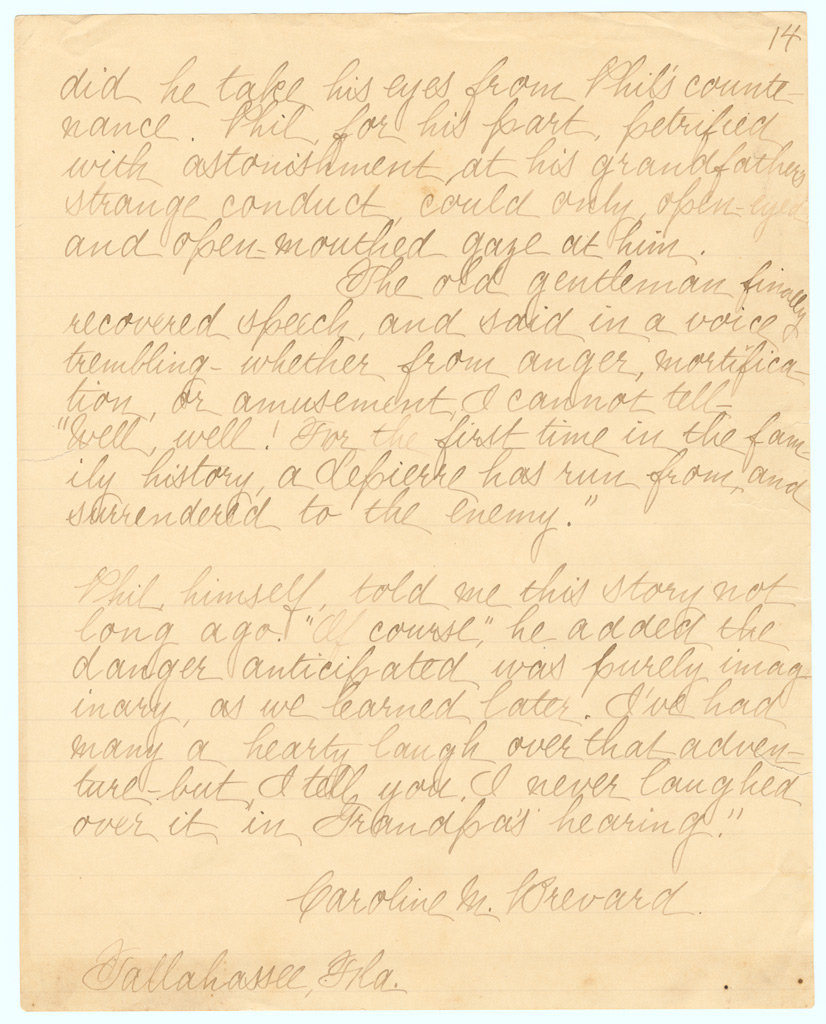 14
did he take his eyes from Phil's counte-
nance. Phil, for his part, petrified
with astonishment at his grandfathers
strange conduct, could only, open-eyed
and open-mouthed gaze at him.
The old gentleman finally
recovered speech, and said in a voice
trembling - whether from anger, mortifica-
tion, or amusement, I cannot tell -
"Well, well! For the first time in the fam-
ily history, a LePierre has run from, and
surrendered to the enemy."
Phil, himself, told me this story not
long ago. "Of course," he added the
danger anticipated was purely imag
inary, as we learned later. I've had
many a hearty laugh over that adven-
ture - but, I tell you, I never laughed
over it in Grandpa's hearing."
Caroline M. Brevard.
Tallahassee, Fla.